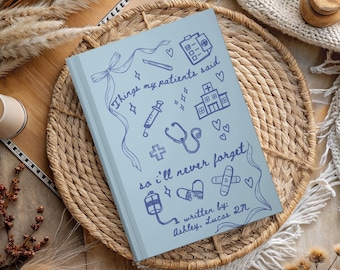 Things my patients said
so i'll never forget
written by:
Ashley, Lucas RN